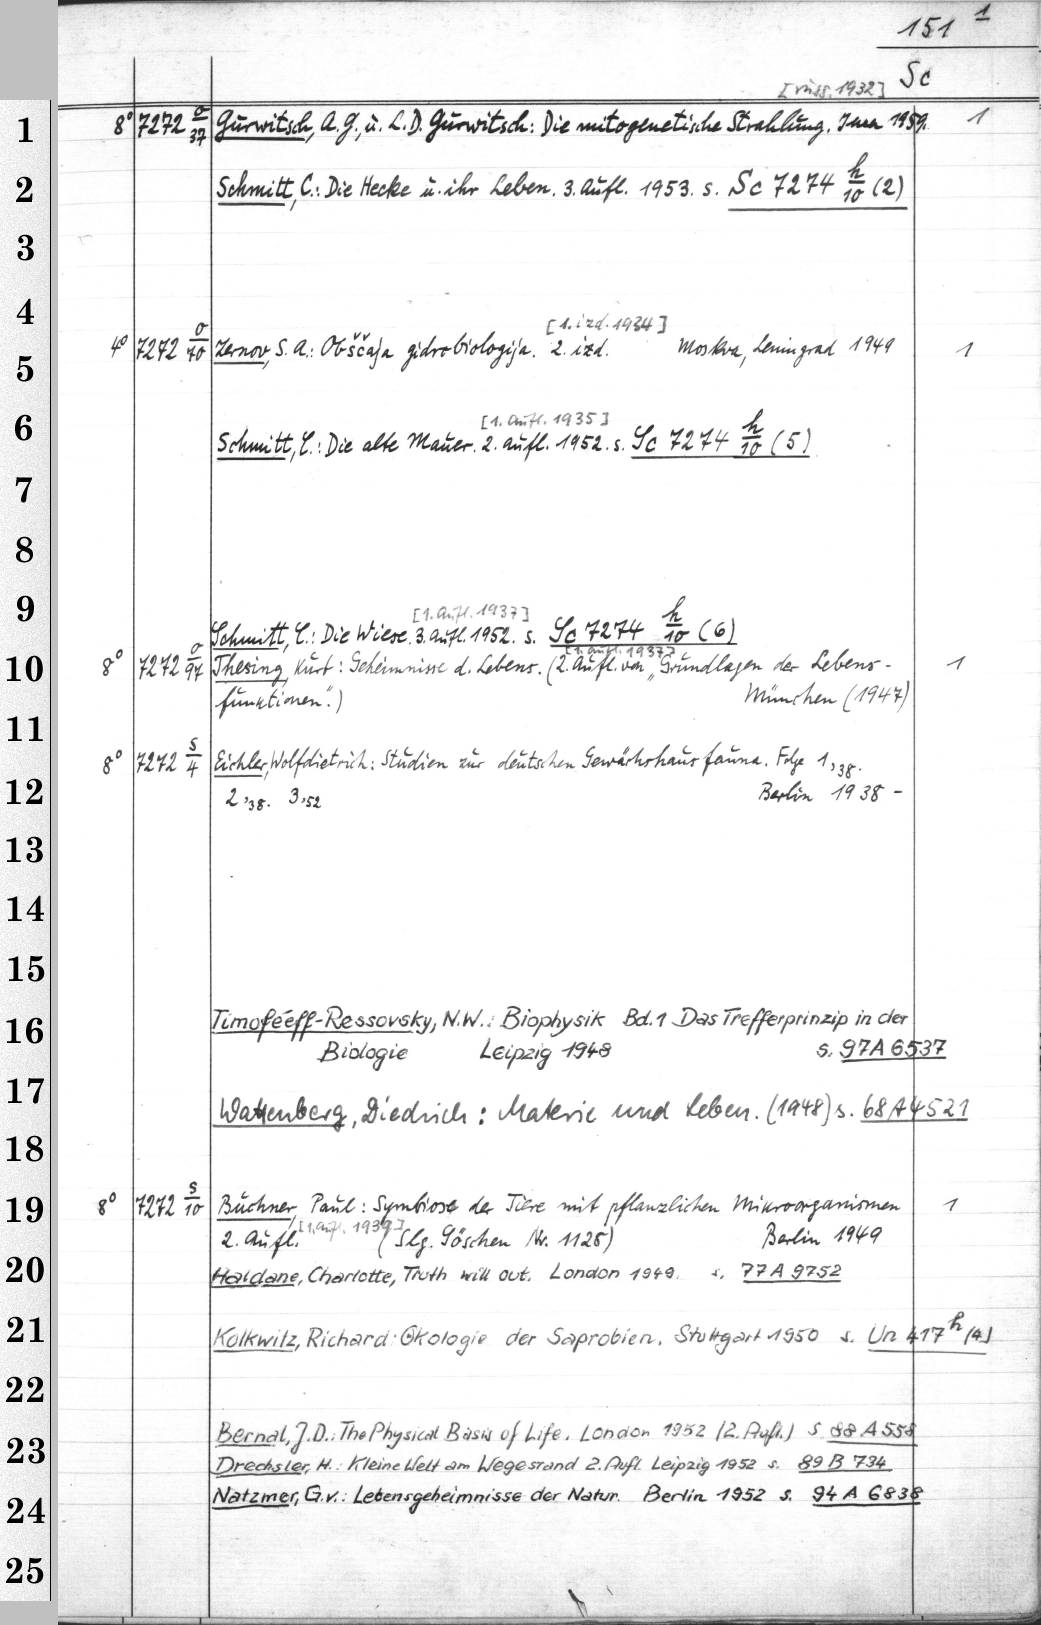 151 1
[russ. 1932] Sc
1 8° 7272 σ/37 Gurwitsch, A. G., u. L. D. Gurwitsch: Die mitogenetische Strahlung. Jena 1959. 1
2 Schmitt, C.: Die Hecke u. ihr Leben. 3. Aufl. 1953. s. Sc 7274 h/10 (2)
3
4 [1. izd. 1934]
4° 7272 σ/70 Zernov, S. A.: Obščaja gidrobiologija. 2. izd. Moskva, Leningrad 1949 1
5
6 [1. Aufl. 1935]
Schmitt, C.: Die alte Mauer. 2. Aufl. 1952. s. Sc 7274 h/10 (5)
7
8
9 [1. Aufl. 1937]
Schmitt, C.: Die Wiese. 3. Aufl. 1952. s. Sc 7274 h/10 (6)
[1. Aufl. 1937]
10 8° 7272 σ/94 Thesing, Kurt: Geheimnisse d. Lebens. (2. Aufl. von „Grundlagen der Lebens-
funktionen“.) München (1947) 1
11
8° 7272 s/4 Eichler, Wolfdietrich: Studien zur deutschen Gewächshausfauna. Folge 1,38.
12 2,38. 3,52 Berlin 1938 -
13
14
15
16 Timoféeff-Ressovsky, N.W.: Biophysik Bd. 1 Das Trefferprinzip in der
Biologie Leipzig 1948 s. 97 A 6537
17 Wattenberg, Diedrich: Materie und Leben. (1948) s. 68 A 4521
18
19 8° 7272 s/10 Buchner, Paul: Symbiose der Tiere mit pflanzlichen Mikroorganismen 1
[1. Aufl. 1939]
2. Aufl. (Slg. Göschen Nr. 1128) Berlin 1949
20 Haldane, Charlotte, Truth will out. London 1949. s. 77 A 9752
21 Kolkwitz, Richard: Ökologie der Saprobien. Stuttgart 1950 s. Un 417 h (4)
22
23 Bernal, J.D.: The Physical Basis of Life. London 1952 (2. Aufl.) s. 88 A 558
Drechsler, H.: Kleine Welt am Wegesrand 2. Aufl. Leipzig 1952 s. 89 B 734
24 Natzmer, G. v.: Lebensgeheimnisse der Natur. Berlin 1952 s. 94 A 6838
25